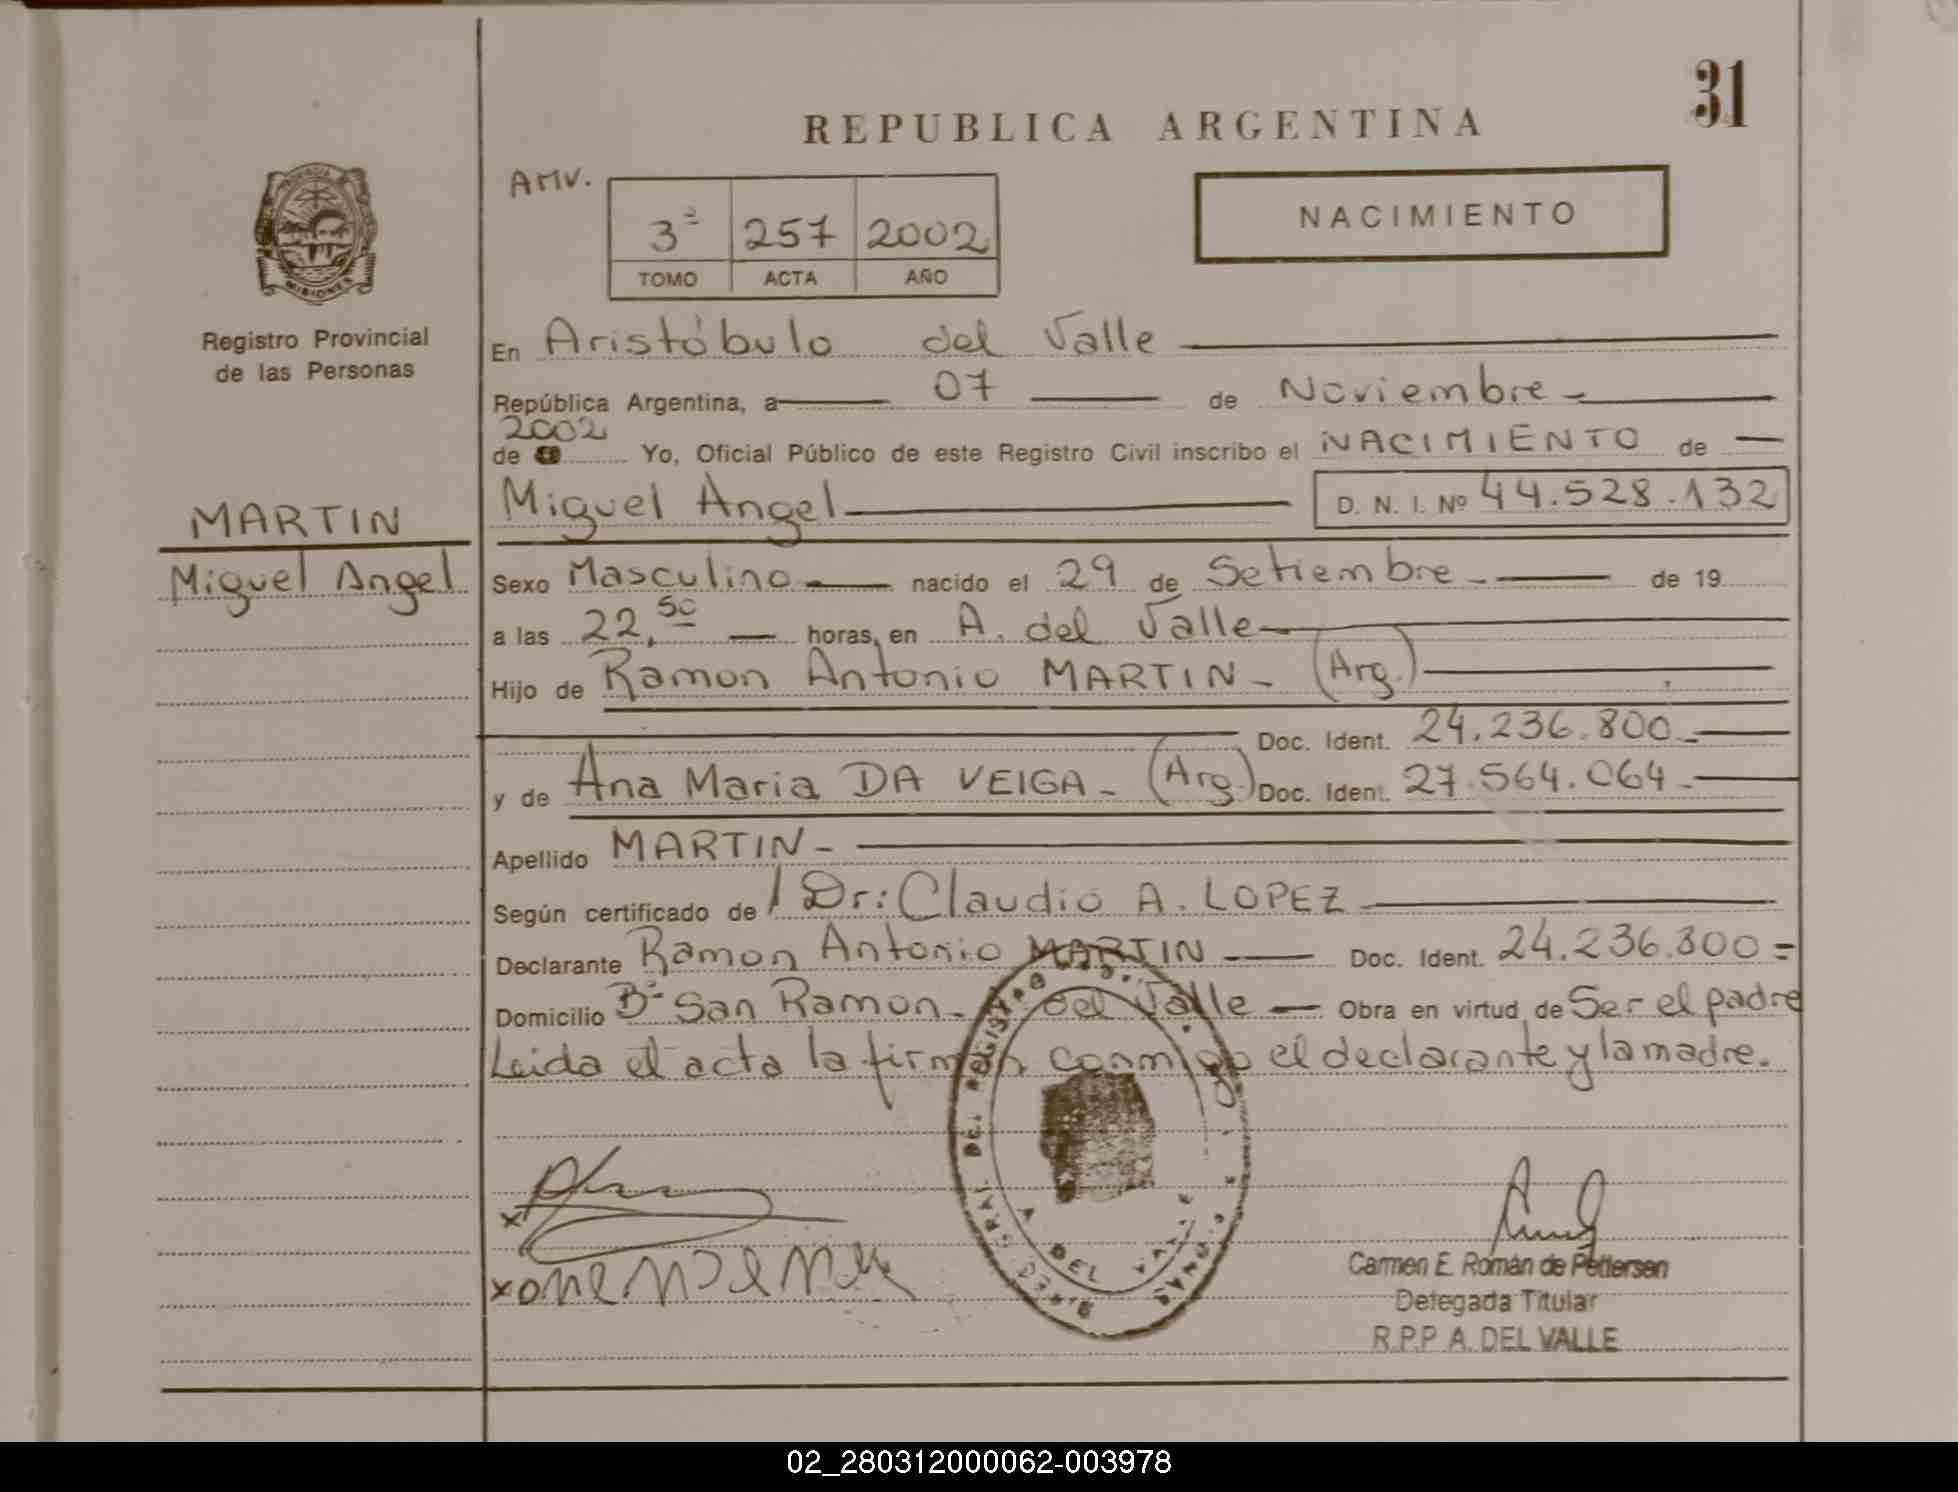 31
REPUBLICA ARGENTINA
AMV.
3º 257 2002
TOMO ACTA AÑO
NACIMIENTO
MISIONES
Registro Provincial
de las Personas
En Aristóbulo del Valle
República Argentina, a 07 de Noviembre
2002
de Yo, Oficial Público de este Registro Civil inscribo el NACIMIENTO de
Miguel Angel D. N. I. Nº 44.528.132
MARTIN
Miguel Angel
Sexo Masculino nacido el 29 de Setiembre de 19
a las 22,50 horas, en A. del Valle
Hijo de Ramon Antonio MARTIN - (Arg.)
Doc. Ident. 24.236.800
y de Ana Maria DA VEIGA - (Arg.) Doc. Ident. 27.564.064
Apellido MARTIN -
Según certificado de Dr: Claudio A. LOPEZ
Declarante Ramon Antonio MARTIN Doc. Ident. 24.236.300
Domicilio Bº San Ramon - del Valle Obra en virtud de Ser el padre
Leida el acta la firman conmigo el declarante y la madre.
A DEL VALLE
Carmen E. Román de Pettersen
Delegada Titular
R.P.P A. DEL VALLE
02_280312000062-003978